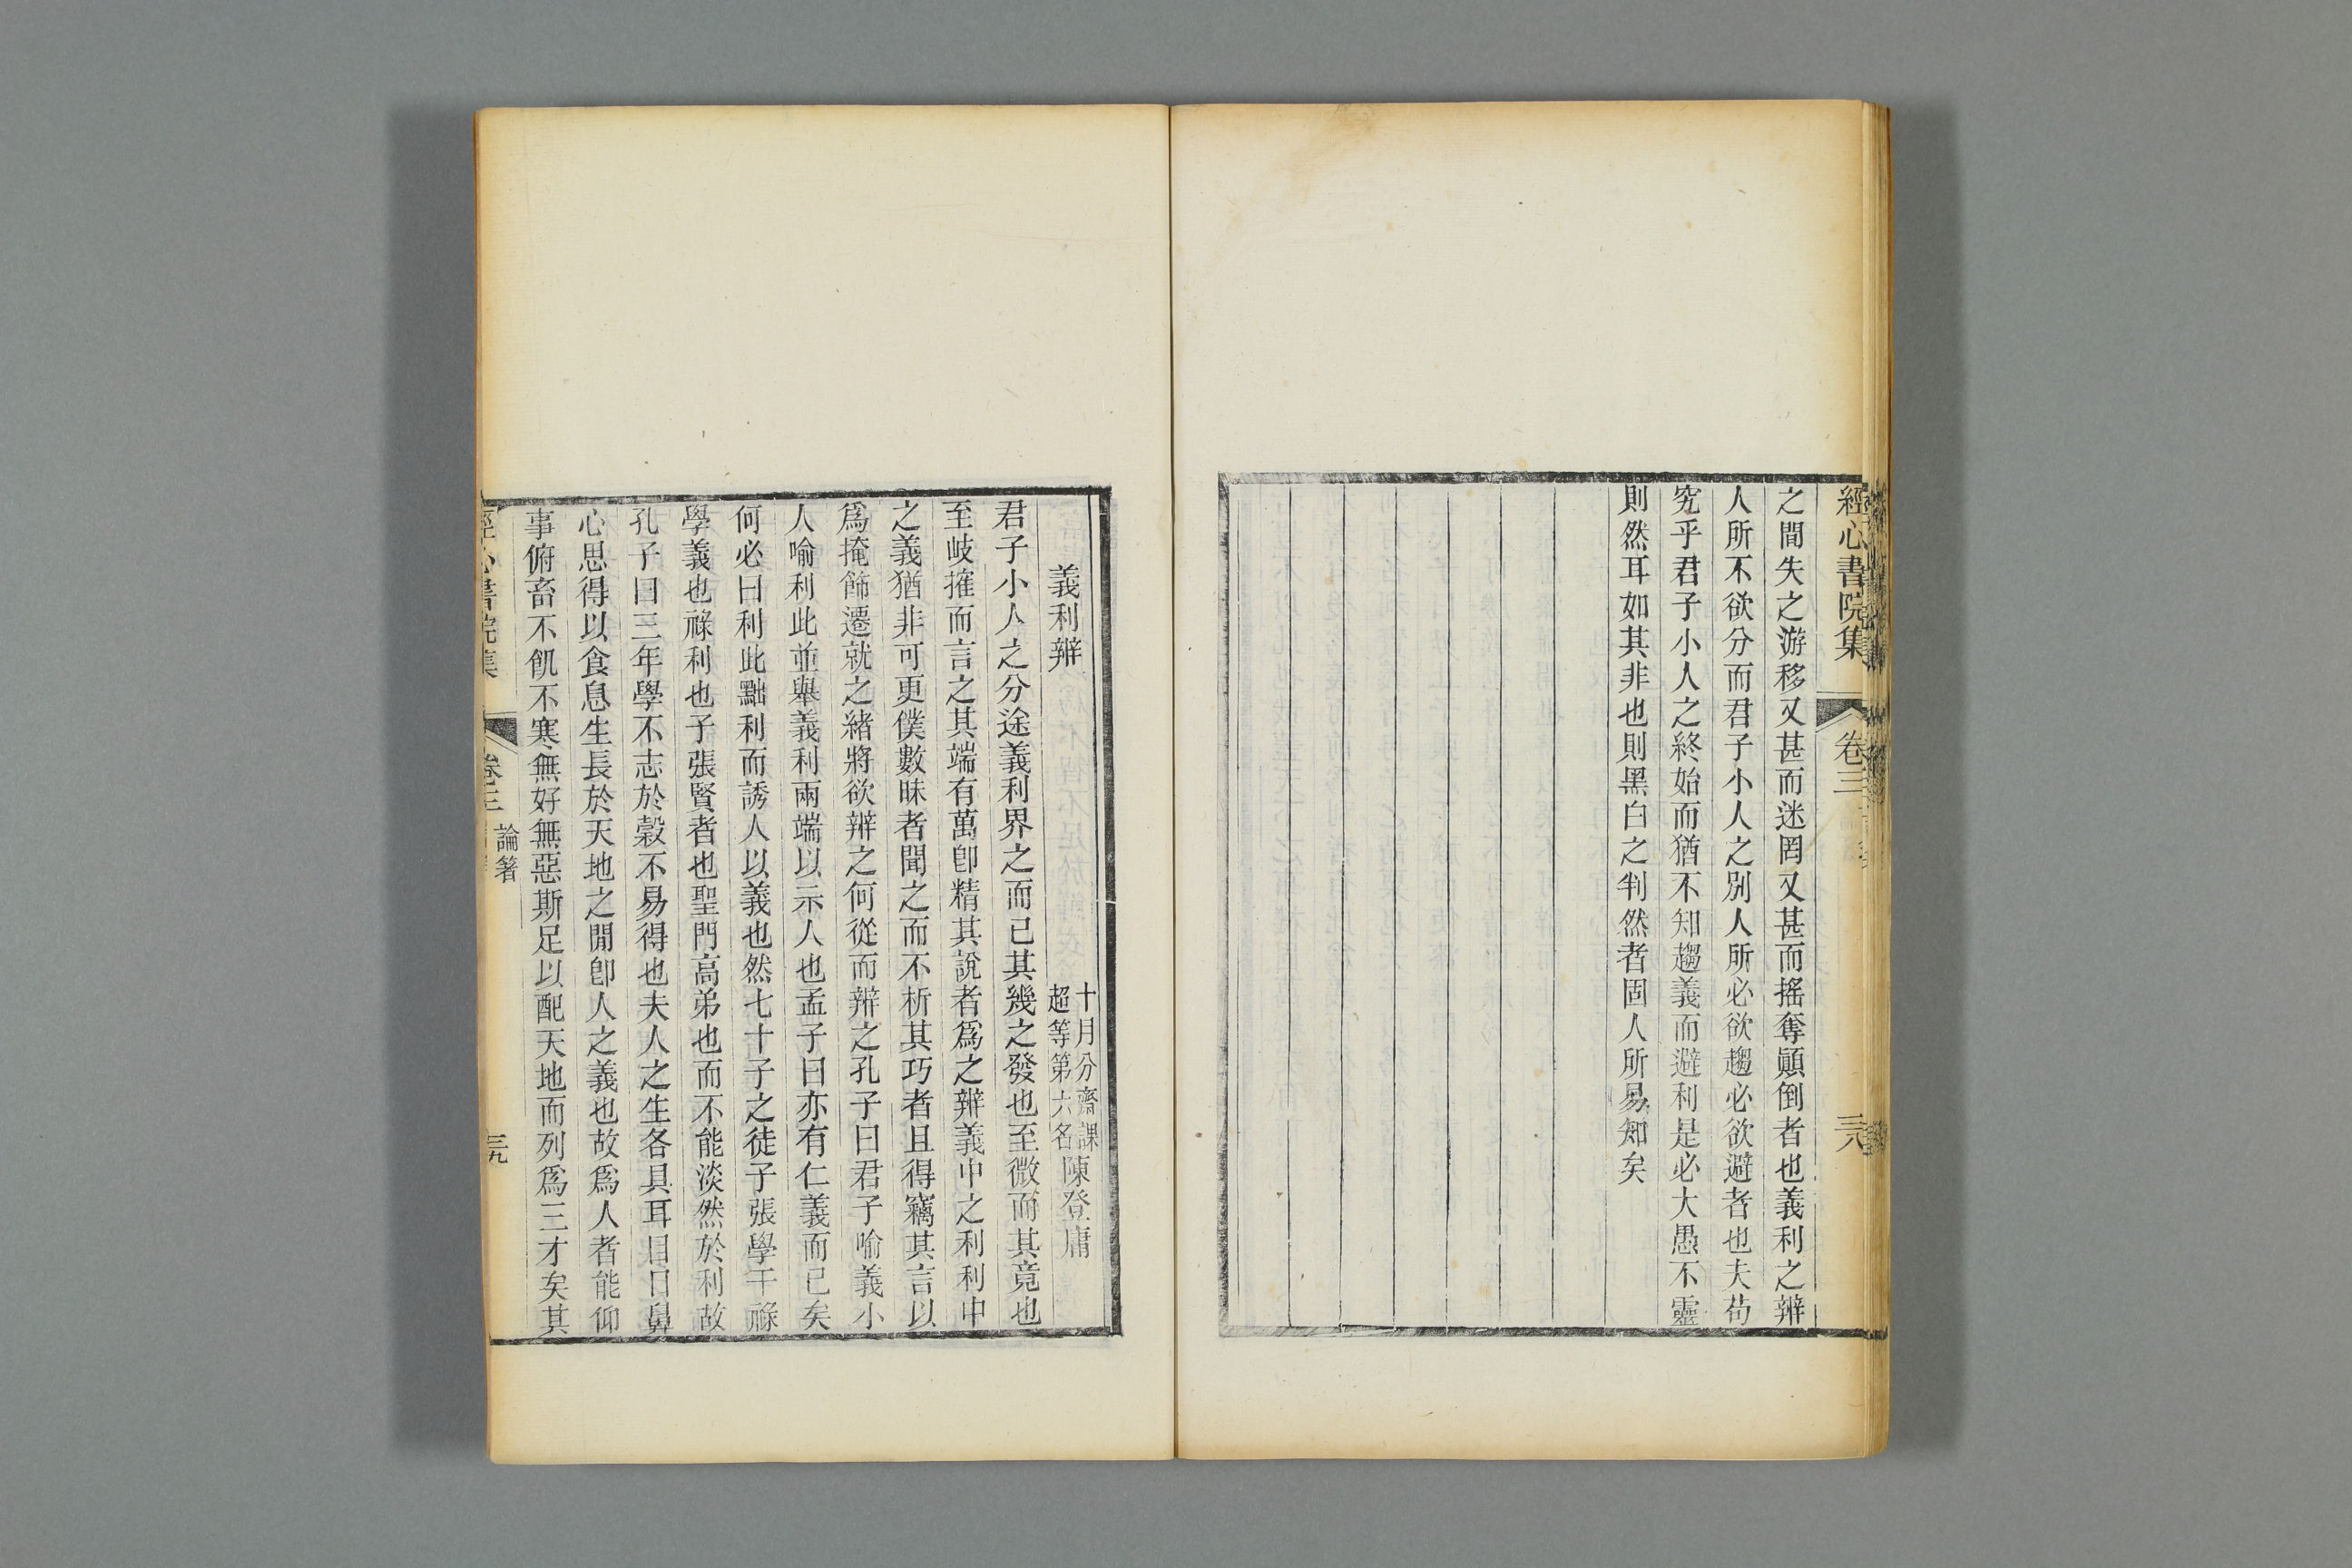 經心書院集
卷三
三八
之間失之游移又甚而迷罔又甚而搖奪顚倒者也義利之辨
人所不欲分而君子小人之別人所必欲趨必欲避者也夫苟
究乎君子小人之終始而猶不知趨義而避利是必大愚不靈
則然耳如其非也則黑白之判然者固人所易知矣
義利辨
十月分齋課
超等第六名
陳登庸
君子小人之分途義利界之而已其幾之發也至微而其竟也
至岐搉而言之其端有萬卽精其說者爲之辨義中之利利中
之義猶非可更僕數昧者聞之而不析其巧者且得竊其言以
爲掩飾遷就之緒將欲辨之何從而辨之孔子曰君子喻義小
人喻利此並舉義利兩端以示人也孟子曰亦有仁義而已矣
何必曰利此黜利而誘人以義也然七十子之徒子張學干祿
學義也祿利也子張賢者也聖門高弟也而不能淡然於利故
孔子曰三年學不志於穀不易得也夫人之生各具耳目口鼻
心思得以食息生長於天地之閒卽人之義也故爲人者能仰
事俯畜不飢不寒無好無惡斯足以配天地而列爲三才矣其
經心書院集
卷三
論箸
三九